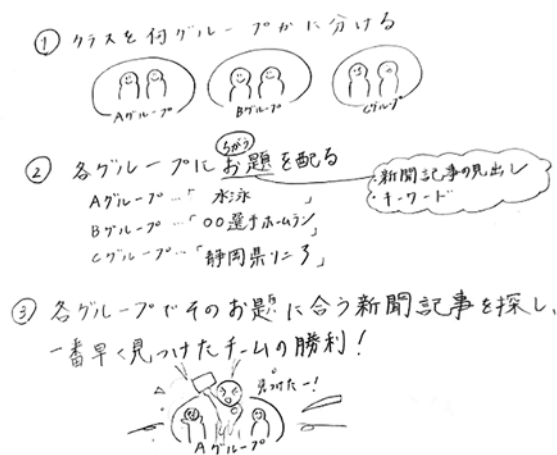 ① クラスを何グループかに分ける
Aグループ
Bグループ
Cグループ
ちがう
② 各グループにお題を配る
・新聞記事の見出し
・キーワード
Aグループ…「水泳」
Bグループ…「〇〇選手ホームラン」
Cグループ…「静岡県リニア」
③ 各グループでそのお題に合う新聞記事を探し、
一番早く見つけたチームの勝利！
見つけたー！
Aグループ